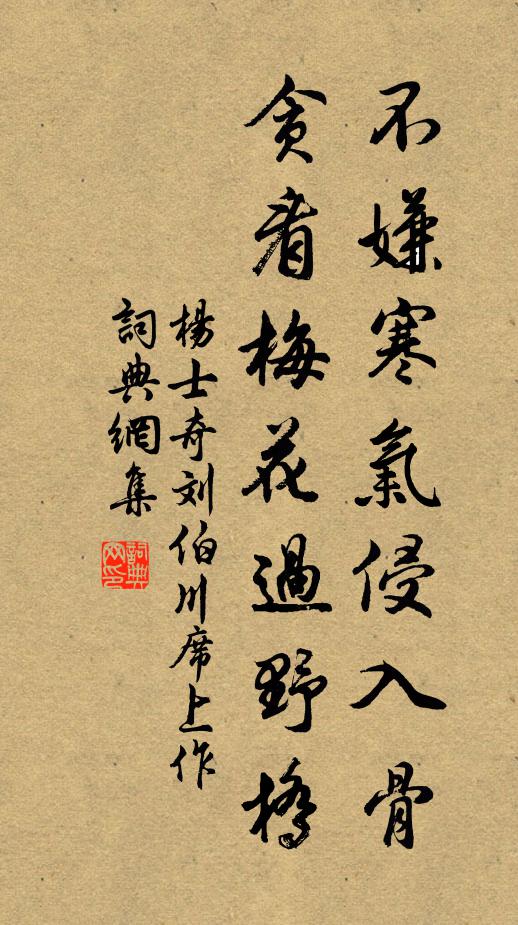 不嫌寒氣侵入骨
貪看梅花過野橋
楊士奇刘伯川席上作
詞典網集
詞典网印